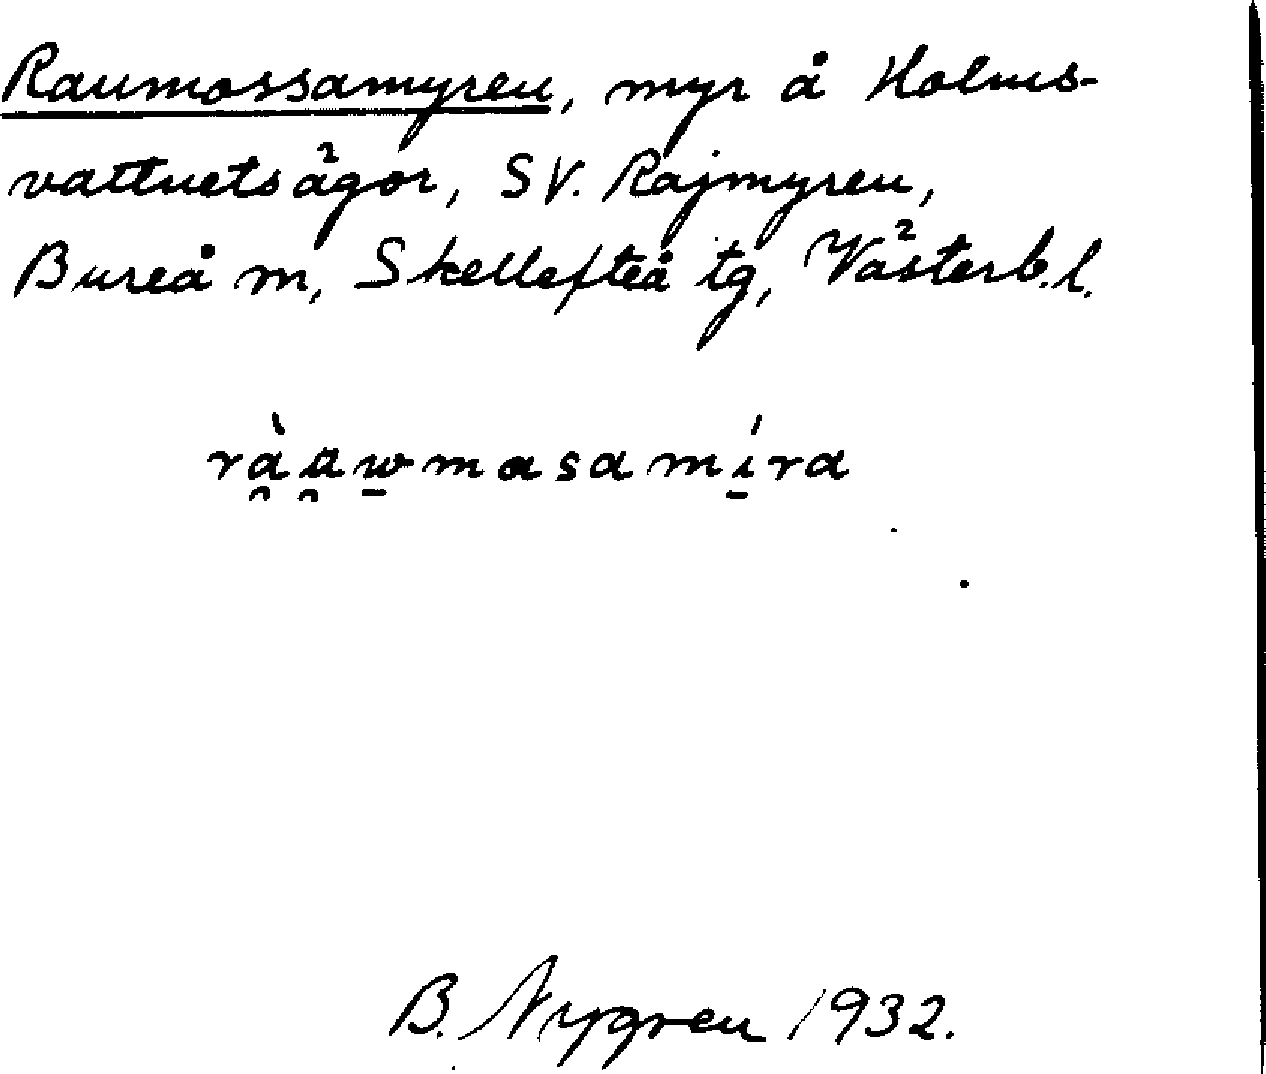 Raumossamyren, myr å Holms-
vattnets ägor, SV. Rajmyren,
Bureå m, Skellefteå tg, Västerb.l.
rà̯a̯w̱masamí̱ra
B. Nygren 1932.